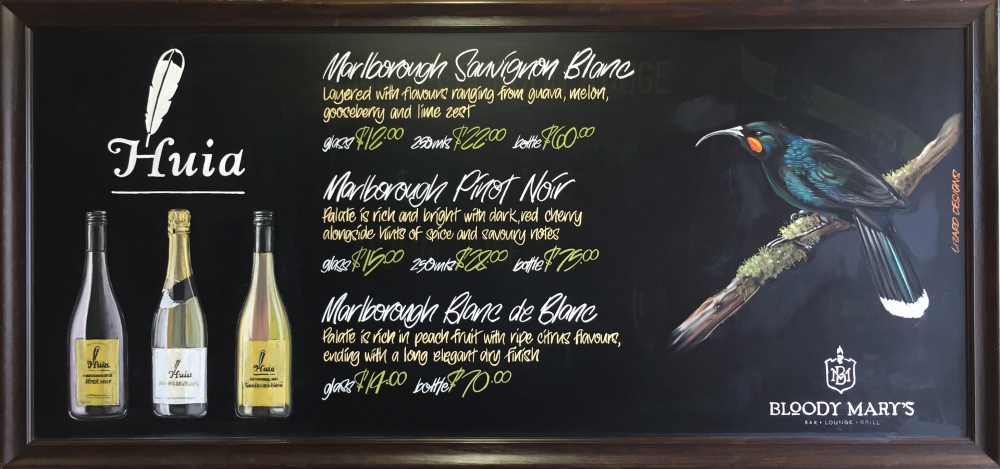 Huia
Marlborough Sauvignon Blanc
Layered with flavours ranging from guava, melon,
gooseberry and lime zest
glass $12.00 250mls $22.00 bottle $60.00
Marlborough Pinot Noir
Palate is rich and bright with dark, red cherry
alongside hints of spice and savoury notes
glass $15.00 250mls $28.00 bottle $75.00
Marlborough Blanc de Blanc
Palate is rich in peach fruit with ripe citrus flavours,
ending with a long elegant dry finish
glass $14.00 bottle $70.00
Huia
Huia
Huia
LIZARD DESIGNS
BM
BLOODY MARY'S
BAR • LOUNGE • GRILL